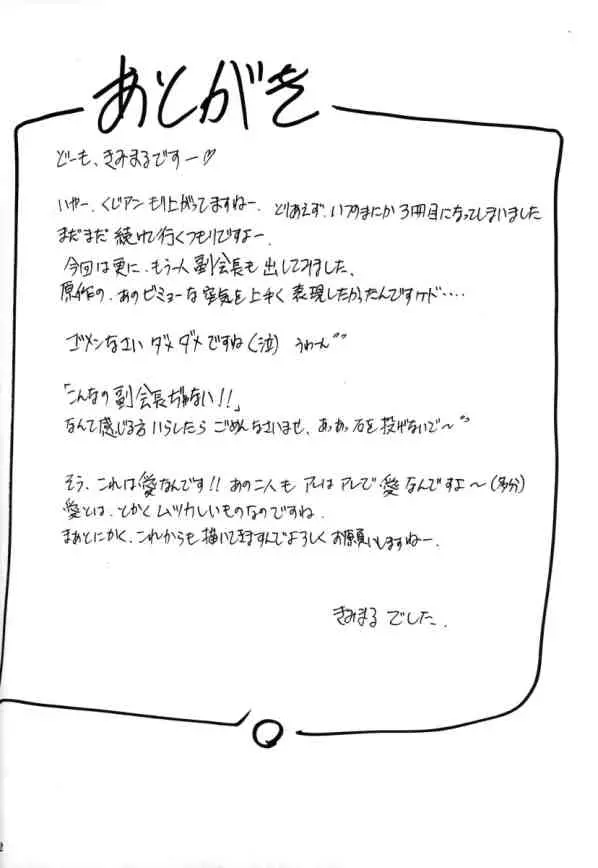 あとがき
どーも、きみまるですー♡
いやー、くじアンもり上がってますねー。とりあえず、いつのまにか3冊目になってしまいました
まだまだ続けて行くつもりですよー。
今回は更に、もう一人副会長も出してみました。
原作の、あのビミョーな空気を上手く表現したかったんですケド‥‥
ゴメンなさい ダメダメですね(泣) うわーん
「こんなの副会長ぢゃない!!」
なんて感じる方いらしたらごめんなさいませ、あぁっ石を投げないで～
そう、これは愛なんです!! あの二人もアレはアレで愛なんですよ～(多分)
愛とは、とかくムツカしいものなのですね。
まぁとにかく、これからも描いてきますんでよろしくお願いしますねー。
きみまるでした。
2